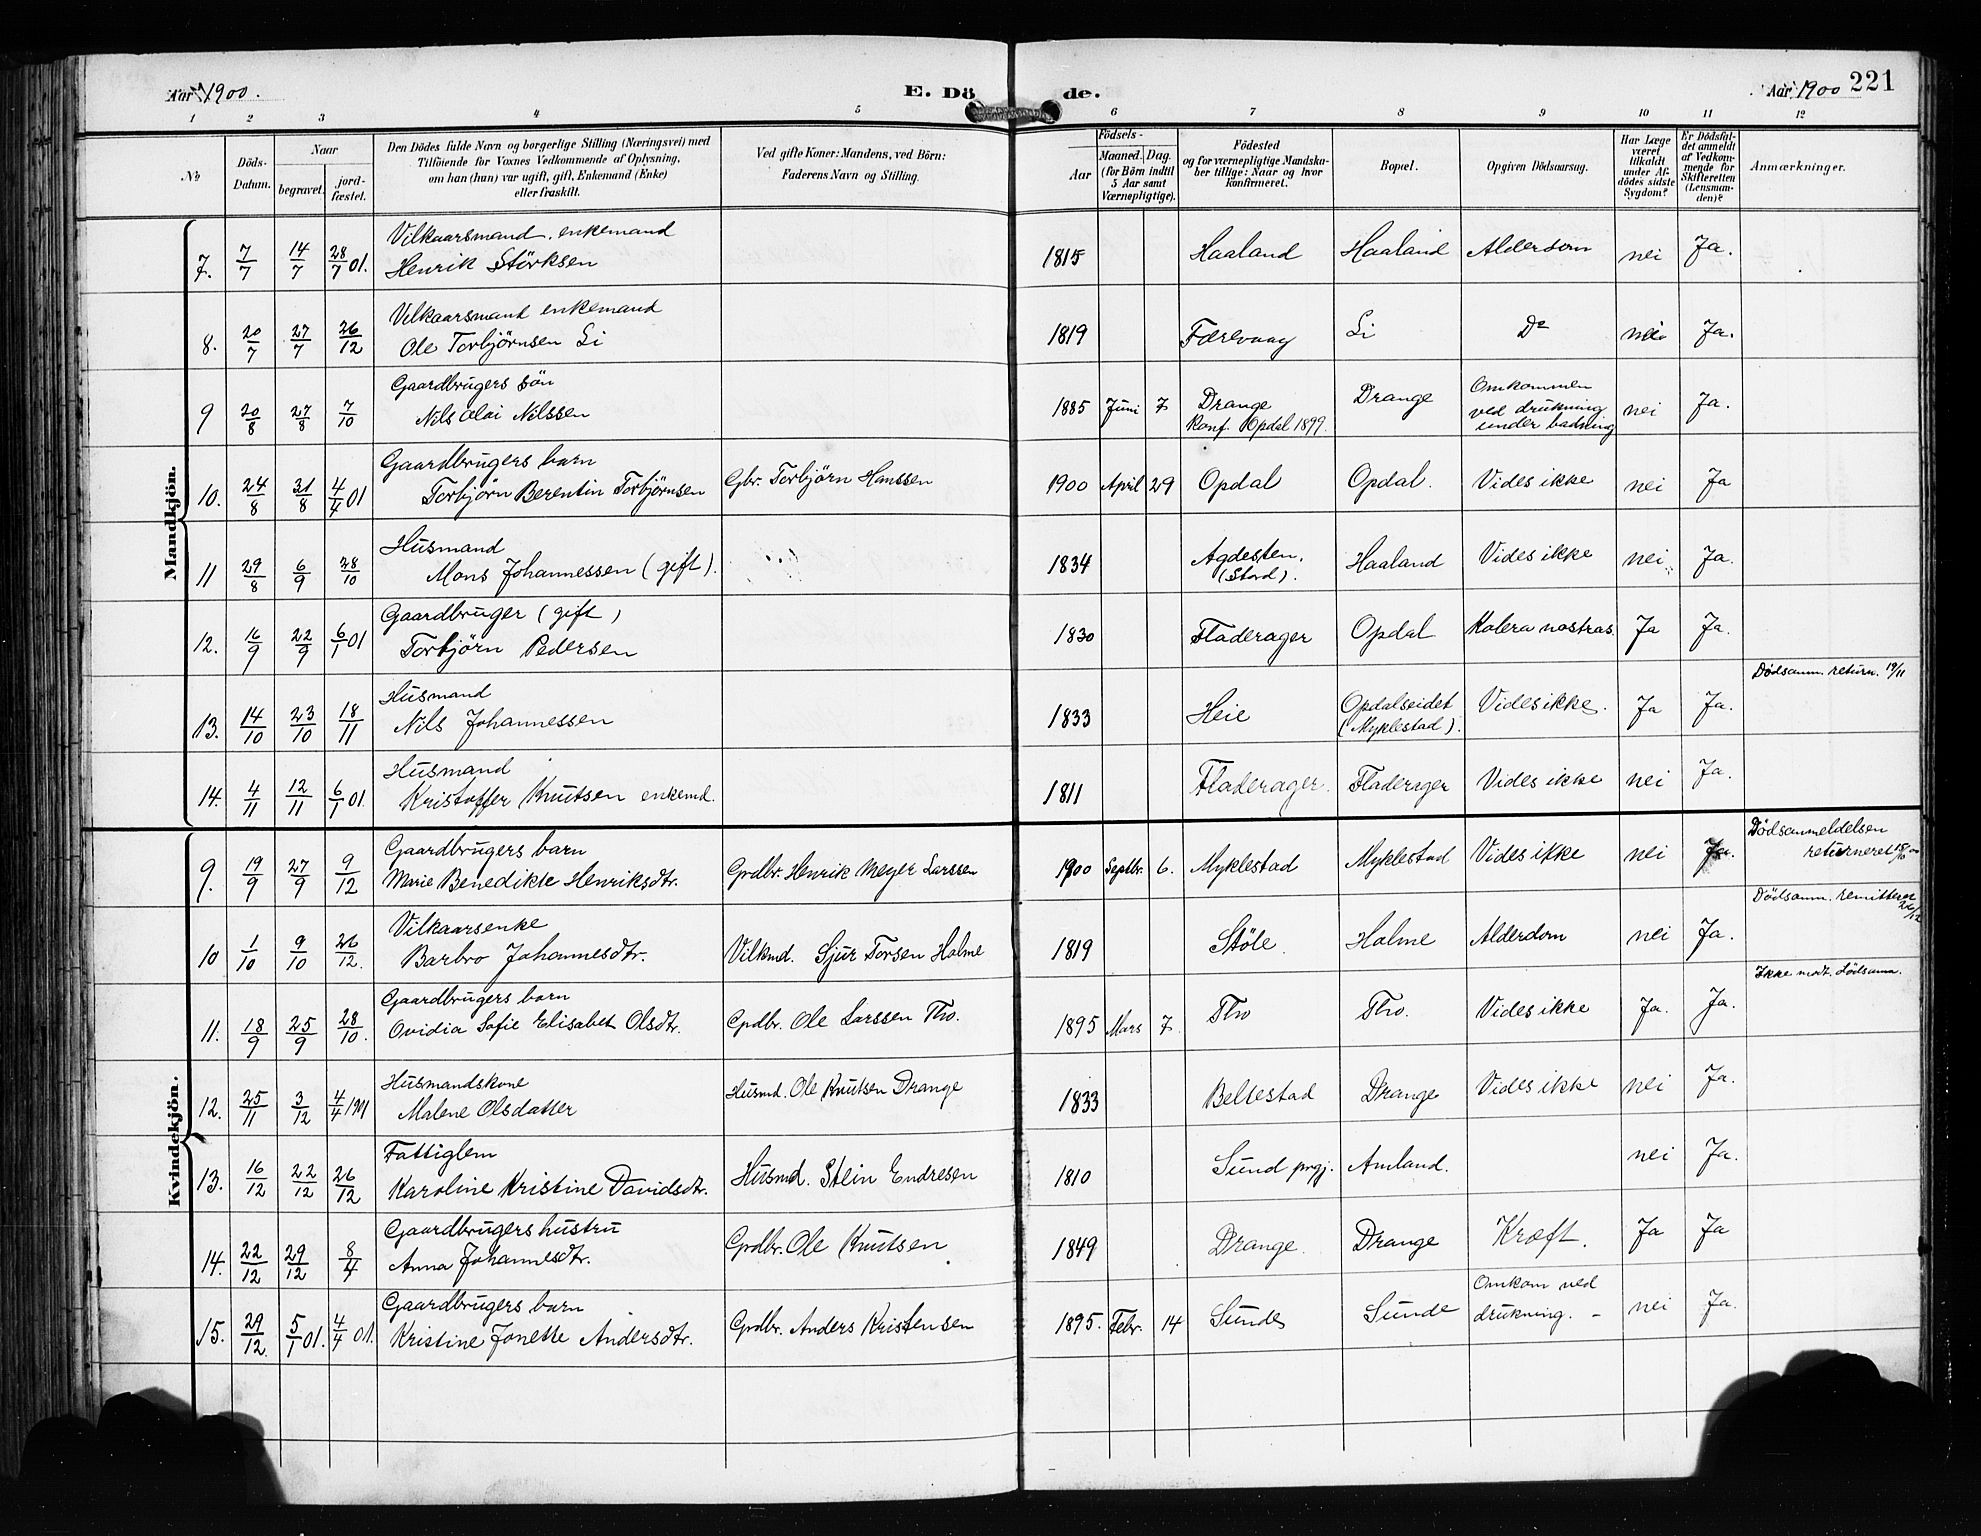 Aar 1900.
E. Dö de.
Aar 1900 221
1 2 3 4 5 6 7 8 9 10 11 12
№
Döds-Datum.
Naar
begravet.
jord-fæstet.
Den Dödes fulde Navn og borgerlige Stilling (Næringsvei) med
Tilföiende for Voxnes Vedkommende af Oplysning,
om han (hun) var ugift, gift, Enkemand (Enke)
eller fraskilt.
Ved gifte Koner: Mandens, ved Börn:
Faderens Navn og Stilling.
Födsels-
Aar
Maaned. Dag.
(for Börn indtil
5 Aar samt
Værnepligtige).
Födested
og for værnepligtige Mandska-
ber tillige: Naar og hvor
konfirmeret.
Bopæl.
Opgiven Dödsaarsag.
Har Læge
været
tilkaldt
under Af-
dödes sidste
Sygdom?
Er Dödsfal-
det anmeldt
af Vedkom-
mende for
Skifteretten
(Lensman-
den)?
Anmærkninger.
Mandkjön.
Vilkaarsmand, enkemand
7. 7/7 14/7 28/7 01. Henrik Störksen 1815 Haaland Haaland Aldersom nei Ja.
Vilkaarsmand enkemand
8. 20/7 27/7 26/12 Ole Torbjörnsen Li 1819 Færevaag Li Do nei Ja.
Gaardbrugers sön
9 20/8 27/8 7/10 Nils Olai Nilssen 1885 Juni 7 Drange Konf. Opdal 1899. Drange Omkommen ved drukning under badning nei Ja.
Gaardbrugers barn
10. 24/8 31/8 4/4 01 Torbjörn Berentin Torbjörnsen Gbr. Torbjörn Hanssen 1900 April 29 Opdal Opdal. Vides ikke nei Ja
Husmand
11 29/8 6/9 28/10 Mons Johannessen (gift). 1834 Agdesten. (Stord). Haaland Vides ikke nei Ja.
Gaardbruger (gift)
12. 16/9 22/9 6/1 01 Torbjörn Pedersen 1830 Fladerager Opdal Kolera nostras. Ja Ja.
Husmand
13. 14/10 23/10 18/11 Nils Johannessen 1833 Heie Opdalseidet (Myklestad). Vides ikke. Ja Ja. Dödsanm. return. 19/11
Husmand
14. 4/11 12/11 6/1 01. Kristoffer Knutsen enkemd. 1811 Fladerager. Fladerager Vides ikke nei Ja.
Kvindekjön.
Gaardbrugers barn
9. 19/9 27/9 9/12 Marie Benedikte Henriksdtr. Grdbr. Henrik Meyer Larssen 1900 Septbr. 6. Myklestad Myklestad Vides ikke nei Ja. Dödsanmeldelsen returneret
Vilkaarsenke
10 1/10 9/10 26/12. Barbro Johannesdtr. Vilkmd. Sjur Torsen Holme 1819 Stöle. Holme Alderdom nei Ja. Dödsanm. remitteret 26/12
Gaardbrugers barn
11. 18/9 25/9 28/10. Ovidia Sofie Elisabet Olsdtr. Grdbr. Ole Larssen Tho. 1895 Mars 7. Tho Tho. Vides ikke Ja. Ja. Ikke modt. dödsanm.
Husmandskone
12. 25/11 3/12 4/4 1901 Malene Olsdatter Husmd. Ole Knutsen Drange 1833 Beltestad Drange Vides ikke nei Ja.
Fattiglem
13. 16/12 22/12 26/12 Karoline Kristine Davidsdtr. Husmd. Stein Endresen 1810 Sund prgj. Amland. nei Ja.
Gaardbrugers hustru
14. 22/12 29/12 8/4 Anna Johannesdtr. Grdbr. Ole Knutsen 1849 Drange. Drange Kræft. Ja Ja
Gaardbrugers barn
15. 29/12. 5/1 01. 4/4 01. Kristine Jonette Andersdtr. Grdbr. Anders Kristensen 1895. Febr. 14 Sunde Sunde Omkom ved drukning. - nei Ja.